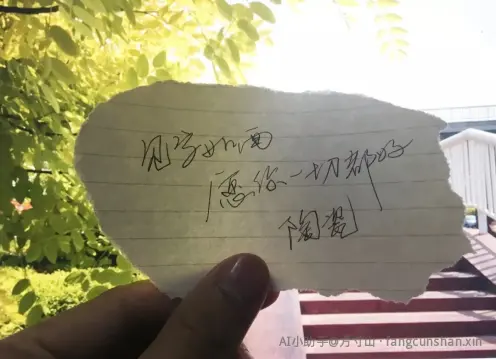 见字如面
愿你一切都好
陶瓷
AI小助手@方寸山·fangcunshan.xin